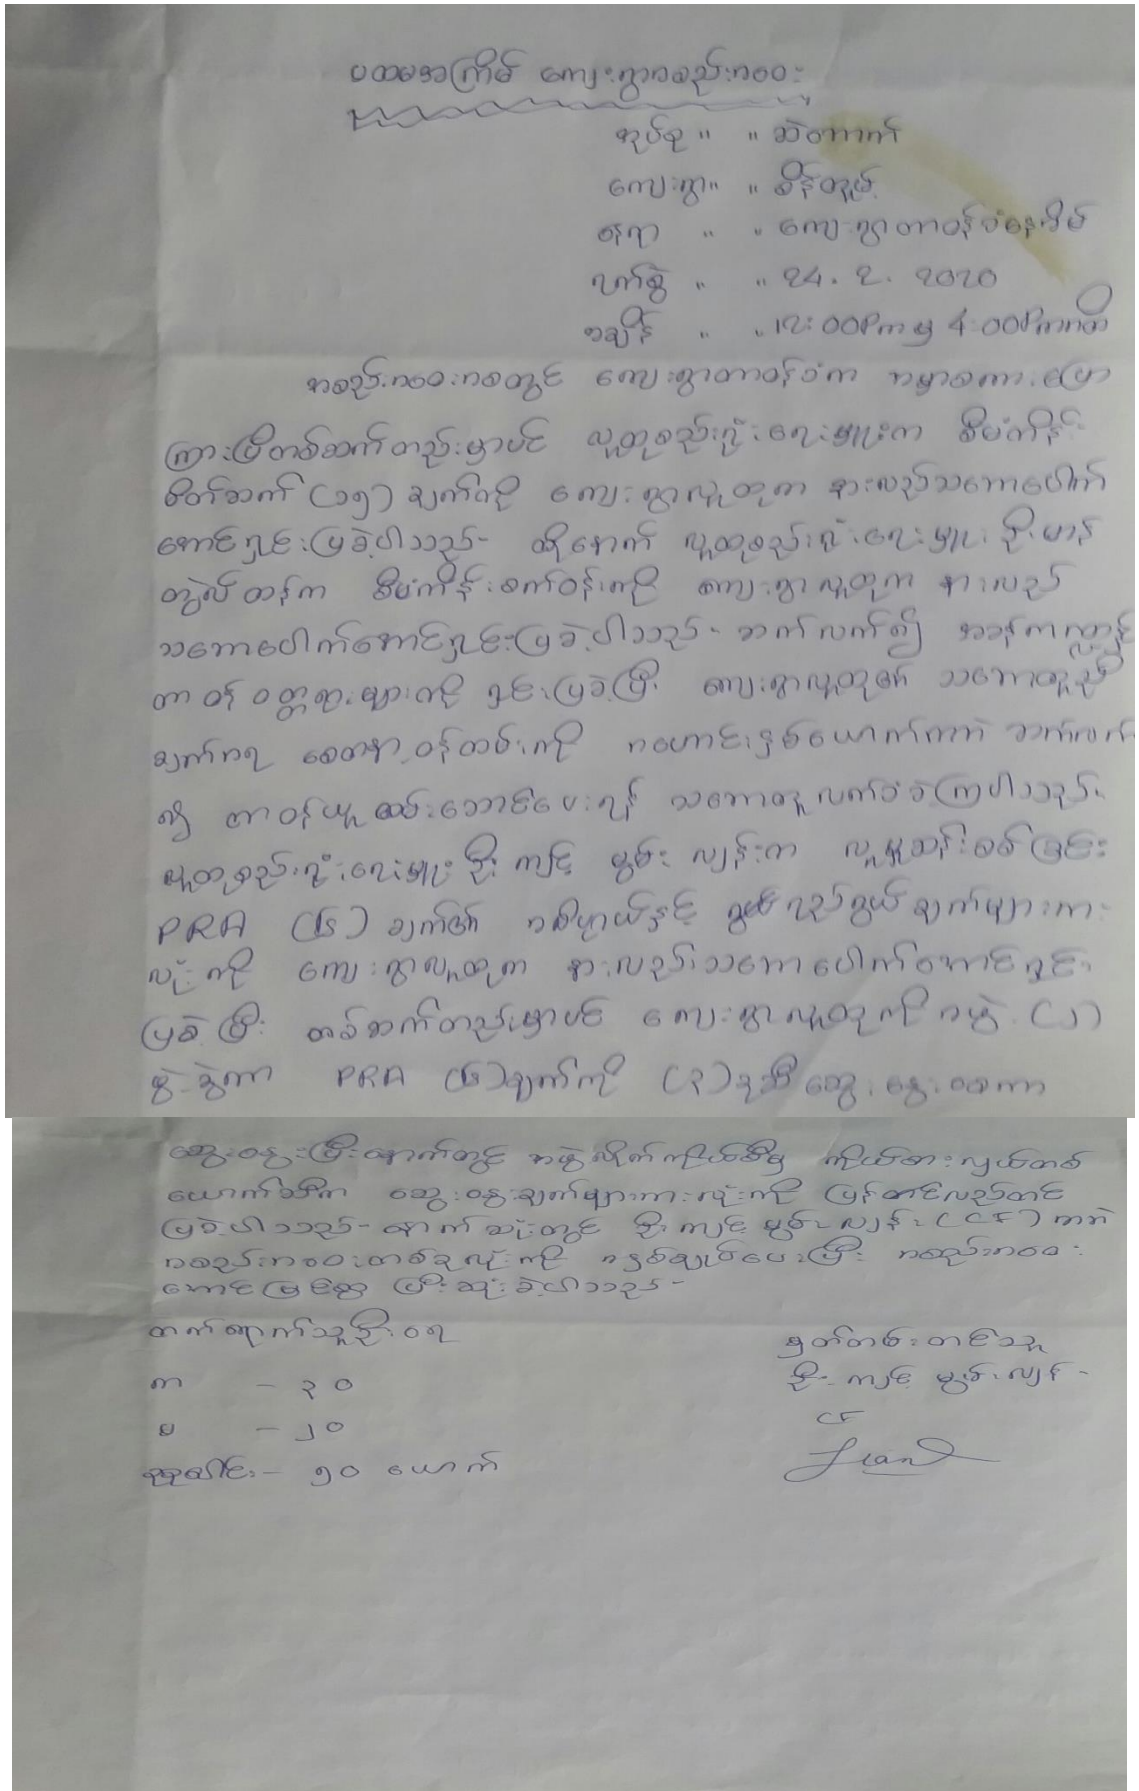 ပထမအကြိမ် ကျေးရွာအစည်းအဝေး
အုပ်စု " " ဆဲတာက်
ကျေးရွာ " " စိန်တူမ့်
နေရာ " " ကျေးရွာတာဝန်ခံနေအိမ်
ရက်စွဲ " " 24. 2. 2020
အချိန် " " 12:00Pmမှ 4:00Pmအထိ
အစည်းအဝေးအစတွင် ကျေးရွာတာဝန်ခံက အမှာစကားပြော
ကြားပြီးတစ်ဆက်တည်းမှာပင် လူထုစည်းရုံးရေးမှူးက စီမံကိန်း
စိတ်ဆက် (၁၅) ချက်ကို ကျေးရွာလူထုက နားလည်သဘောပေါက်
အောင်ရှင်းပြခဲ့ပါသည်- ထို့နောက် လူထုစည်းရုံးရေးမှူး ဦးမာန်
တွဲလ်ထန်က စီမံကိန်းစက်ဝန်းကို ကျေးရွာလူထုက နားလည်
သဘောပေါက်အောင်ရှင်းပြခဲ့ပါသည်- ဆက်လက်၍ အခန်းကဏ္ဍနှင့်
တာဝန် ဝတ္တရားများကို ရှင်းပြခဲ့ပြီး ကျေးရွာလူထု၏ သဘောတူညီ
ချက်အရ စေတနာ့ဝန်ထမ်းကို အဟောင်းနှစ်ယောက်ကဘဲ ဆက်လက်
၍ တာဝန်ယူထမ်းဆောင်ပေးရန် သဘောတူလက်ခံခဲ့ကြပါသည်
လူထုစည်းရုံးရေးမှူး ဦးကျင့် မွမ်းလျန်းက လူမှုဆန်းစစ်ခြင်း
PRA (၆) ချက်၏ အဓိပ္ပာယ်နှင့် ရည်ရွယ်ချက်များအား
လုံးကို ကျေးရွာလူထုက နားလည်သဘောပေါက်အောင်ရှင်း
ပြခဲ့ပြီး တစ်ဆက်တည်းမှာပင် ကျေးရွာလူထုကို အဖွဲ့ (၂)
ဖွဲ့ခွဲကာ PRA (၆)ချက်ကို (၃)ခုစီ ဆွေးနွေးစေကာ
ဆွေးနွေးပြီးနောက်တွင် အဖွဲ့လိုက်ကိုယ်စီမှ ကိုယ်စားလှယ်တစ်
ယောက်စီက ဆွေးနွေးချက်များအားလုံးကို ပြန်လည်တင်
ပြခဲ့ပါသည်- နောက်ဆုံးတွင် ဦးကျင့် မွမ်းလျန်း (CF) ကဘဲ
အစည်းအဝေးတစ်ခုလုံးကို အနှစ်ချုပ်ပေးပြီး အစည်းအဝေး
အောင်မြင်စွာ ပြီးဆုံးခဲ့ပါသည်-
တက်ရောက်သူဦးရေ
ကျား - ၃၀
မ - ၂၀
စုစုပေါင်း - ၅၀ ယောက်
မှတ်တမ်းတင်သူ
ဦးကျင့် မွမ်းလျန်း
CF